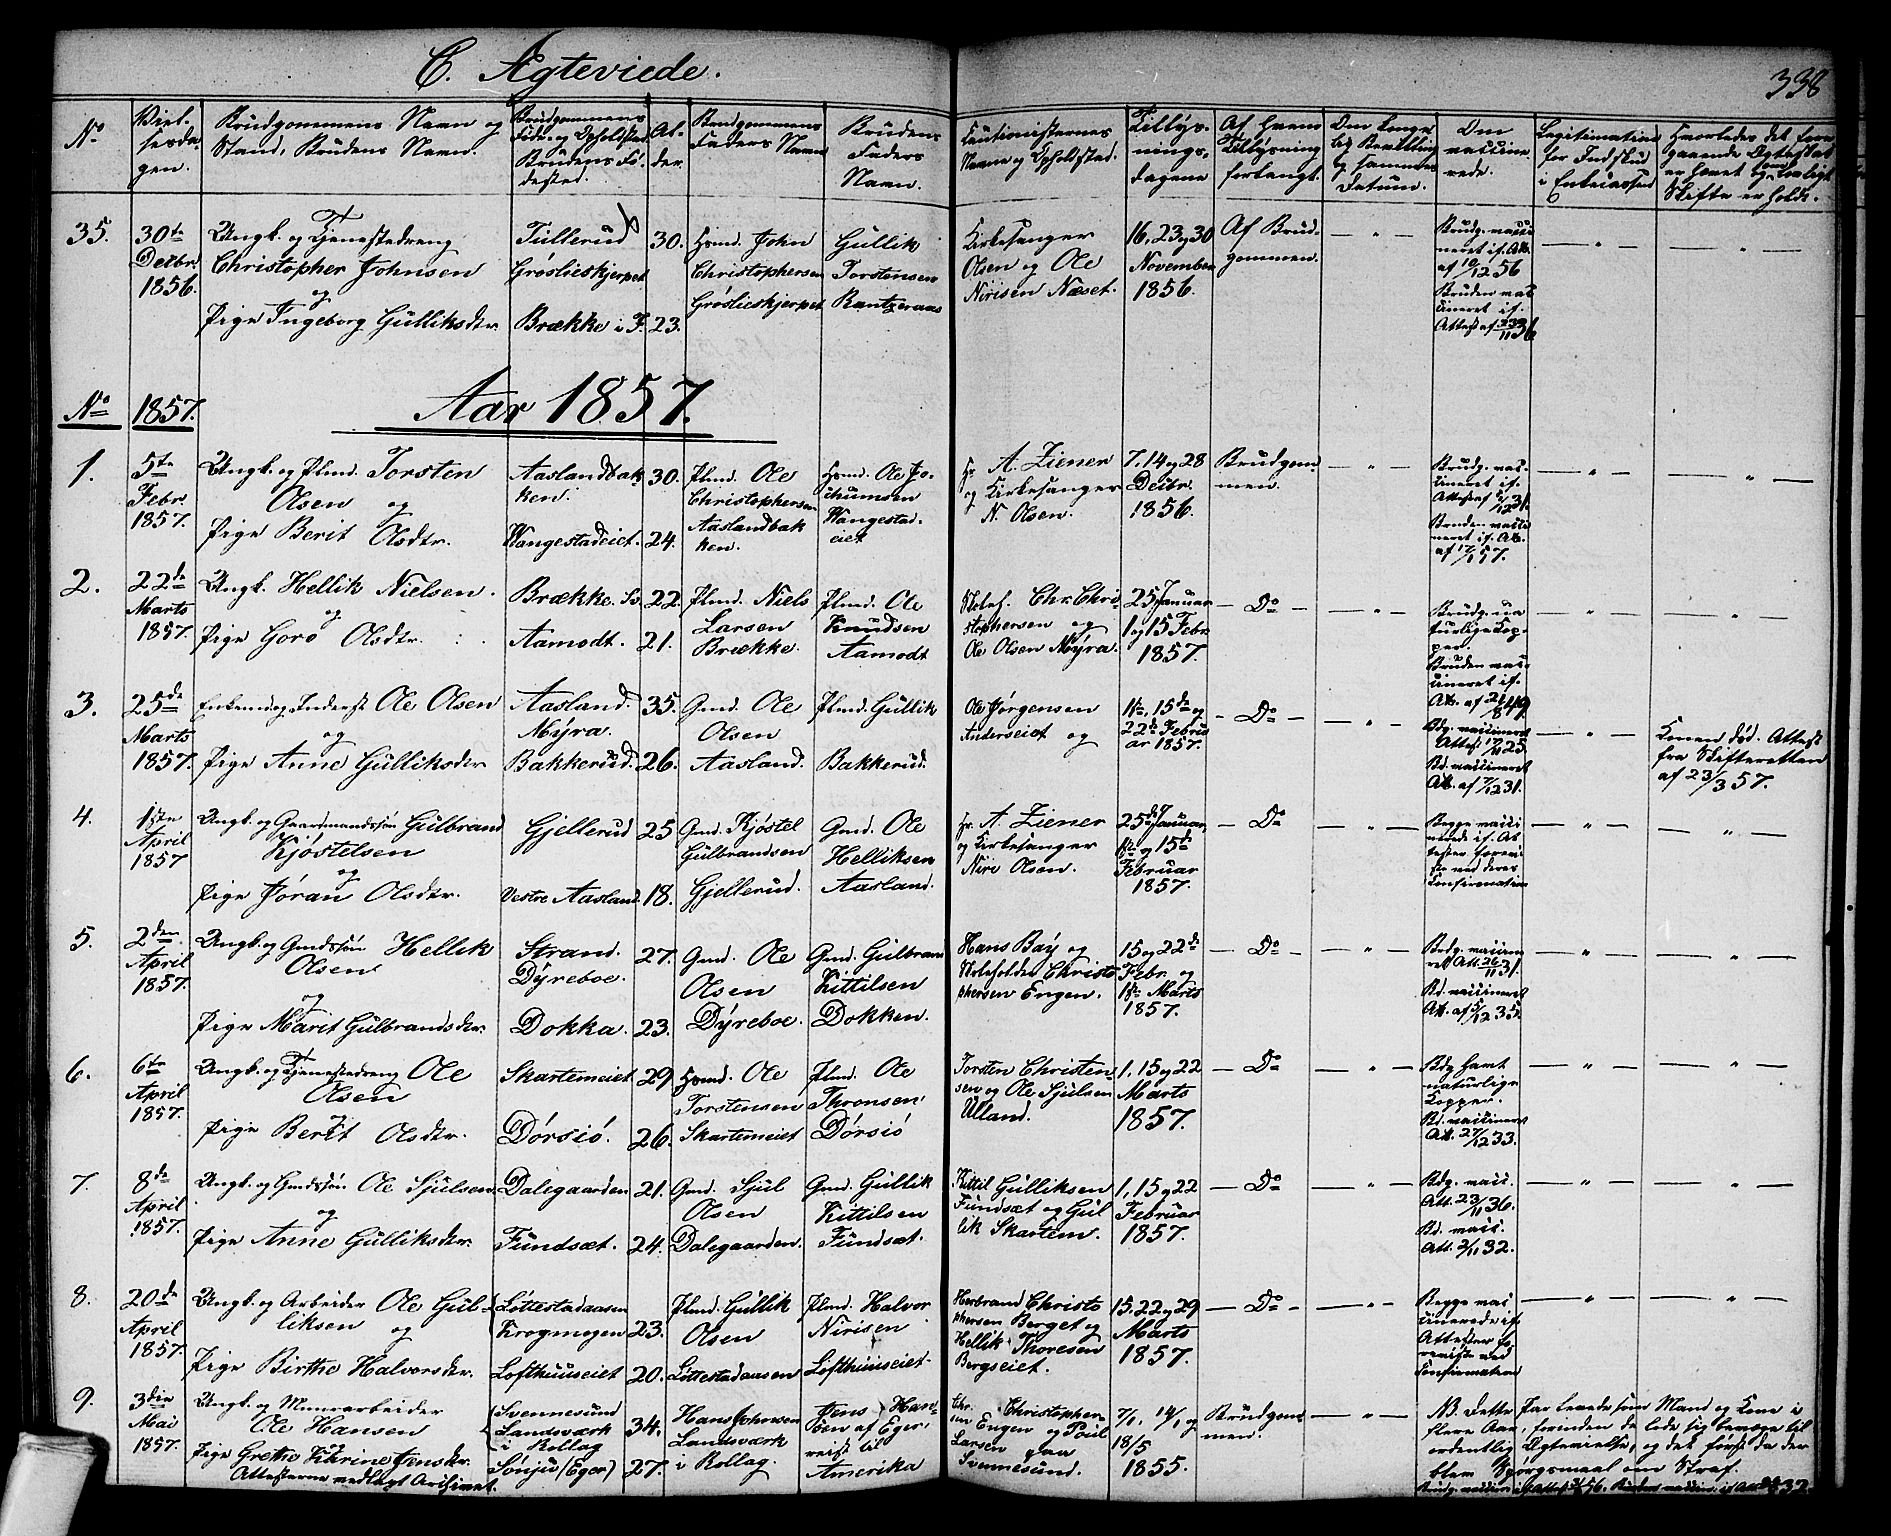 C. Ægteviede.
338
No
Vielsesdagen.
Brudgommens Navn og Stand, Brudens Navn.
Brudgommens Føde- og Opholdssted, Brudens Fødested.
Alder.
Brudgommens Faders Navn
Brudens Faders Navn.
Cautionisternes Navne og Opholdssted.
Tillysningsdagene
Af hvem Tillysning forlangt.
Om Kongelig Bevilling og sammes Datum.
Om vaccinerede.
Legitimation for Indskud i Enkecassen
35.
30te Decbr. 1856.
Ungk. og Tjenestedreng
Christopher Johnsen
og
Pige Ingeborg Gulliksdtr.
Tullerud
Grøslieskjerpet
Brække i F.
30.
23.
Hsmd. John
Christophersen
Grøslieskjerpet
Gullik
Torstensen
Kirkesanger
Olsen og Ole
Nirisen Næset.
16, 23 og 30
November
1856.
Af Brud-
gommen.
Brudg. vacci-
neret if. Att.
af 10/12 56
Bruden vac-
cineret if.
No 1857.
Aar 1857.
1.
5te
Febr.
1857.
Ungk. og Flmd. Torsten
Olsen og
Pige Berit Olsdtr.
Aaslandbak-
ken.
Wangestadeiet.
30.
24.
Flmd. Ole
Christophersen
Aaslandbak-
ken.
Hsmd. Ole Jo-
Wangestad-
eiet
Hr. A. Ziener
og Kirkesanger
N. Olsen.
7, 14 og 28
Decbr.
1856.
Brudgom-
men.
Brudg. vac-
cineret if.
Bruden vacci-
neret if. Att.
af 17/1 57.
2.
22de
Marts
1857.
Ungk. Hellik Nielsen.
og
Pige Goro Olsdtr.
Brække. Sv.
Aamodt.
22.
21.
Flmd. Niels
Larsen
Brække.
Flmd. Ole
Knudsen
Aamodt
Skoleh. Chr. Chri-
stophersen og
Ole Olsen Myra.
25 Januar
1 og 15 Febr.
1857.
Do
Brudg. na-
turlige Kop-
per.
Bruden vac-
cineret if.
Att. af 21/8 49
3.
25de
Marts
1857.
Enkemd. og Inderst Ole Olsen
og
Pige Anne Gulliksdtr
Aasland.
Myra.
Bakkerud.
35.
26.
Gmd. Ole
Olsen
Aasland.
Flmd. Gullik
Bakkerud.
Ole Jørgensen
Anderseiet og
1ste, 15de og
22de Febru-
ar 1857.
Do
Bdg. vaccineret
Bd. vaccineret
Att. af 7/12 31.
Konen død. Attest
fra Skifteretten
af 23/3 57.
4.
1ste
April
1857
Ungk. og Gaardmandssøn Gulbrand
Kjøstelsen
og
Pige Jøran Olsdtr.
Gjellerud
Vestre Aasland.
25
18.
Gmd. Kjøstel
Gulbrandsen
Gjellerud.
Gmd. Ole
Helliksen
Aasland.
Hr. A. Ziener
og Kirkesanger
Niri Olsen.
25de Januar,
1ste og 15de
Februar
1857.
Do
Begge vacci-
nerede if. At-
tester forevi-
ste ved deres
Confirmation
5.
2den
April
1857.
Ungk. og Gmdssøn Hellik
Olsen
og
Pige Marit Gulbrandsdtr.
Strand.
Dyreboe.
Dokka.
27.
23.
Gmd. Ole
Olsen
Dyreboe.
Gmd. Gulbrand
Kittilsen
Dokken.
Hans Bay og
Skoleholder Christo-
phersen Engen.
15 og 22de
Febr. og
1ste Marts
1857.
Do
Brdg. vaccine-
ret Att. 26/11 31.
Bd. vaccineret
Att. af 5/12 35.
6.
6te
April
1857.
Ungk. og Tjenestedreng Ole
Olsen
og
Pige Berit Olsdtr.
Skartemeiet
Dørsiø.
29
26.
Hsmd. Ole
Torstensen
Skartemeiet
Flmd. Ole
Thronsen
Dørsiø
Torsten Christen-
sen og Ole Sjulsen
Ulland.
1, 15 og 22
Marts
1857.
Do
Bdg. havt
naturlige
Kopper.
Bd. vaccineret
Att. 27/12 33.
7.
8de
April
1857.
Ungk. og Gmdssøn Ole Sjulsen
og
Pige Anne Gulliksdtr.
Dalegaarden
Fundsæt.
21.
24.
Gmd. Sjul
Olsen
Dalegaarden.
Gmd. Gullik
Kittilsen
Fundsæt.
Kittil Gulliksen
Fundsæt og Gul-
lik Skartem.
1, 15 og 22
Februar
1857.
Do
Bdg. vacc.
Att. 23/11 36.
Bd. vacc.
Att. 2/11 32.
8.
20de
April
1857.
Ungk. og Arbeider Ole Gul-
liksen og
Pige Birthe Halvorsdtr.
Løttestadaasen
Krogmogen
Lofthuuseiet
23.
20.
Flmd. Gullik
Olsen
Løttestadaasen
Flmd. Halvor
Nirisen
Lofthuuseiet.
Herbrand Christo-
phersen Berget og
Hellik Thoresen
Bergseiet.
15, 22 og 29
Marts
1857.
Do
Begge vac-
cinerede if.
Attester fo-
reviste ved
Confirmation
9.
3die
Mai
1857.
Ungk. og Muurarbeider
Ole Hansen
og
Pige Grethe Cathrine Jensdtr.
Attesterne medlagt Archivet.
Svennesund
Landsværk
i Rollag
Sønju (Eger)
34.
27.
Hans Johnsen
Landsværk
i Rollag.
Jens Han-
sen af Eger,
reist til
Amerika
Christopher-
sen Engen og Poul
Larsen paa
Svennesund.
7/1, 14/1 og
18/5
1855.
Brudgom-
men.
NB. Dette Par levede som Mand og Kone i
flere Aar, førinden de lode sig bevæge til
ordentlig Ægtevielse, og det først da der
blev Spørgsmaal om Straf.